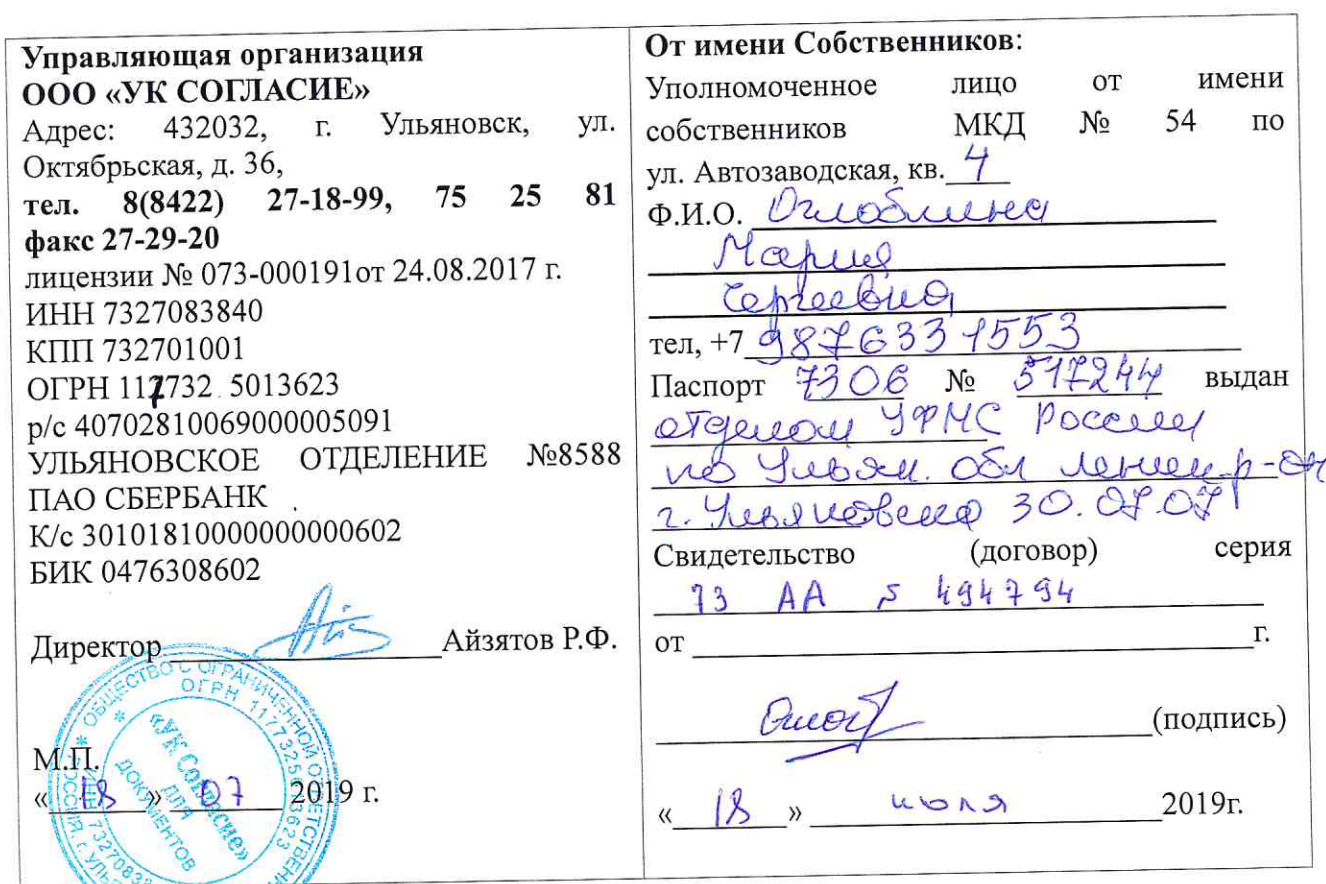 Управляющая организация
ООО «УК СОГЛАСИЕ»
Адрес: 432032, г. Ульяновск, ул.
Октябрьская, д. 36,
тел. 8(8422) 27-18-99, 75 25 81
факс 27-29-20
лицензии № 073-000191от 24.08.2017 г.
ИНН 7327083840
КПП 732701001
ОГРН 117732 5013623
р/с 40702810069000005091
УЛЬЯНОВСКОЕ ОТДЕЛЕНИЕ №8588
ПАО СБЕРБАНК
К/с 30101810000000000602
БИК 0476308602
Директор Айзятов Р.Ф.
М.П.
« 18 » 07 2019 г.
ОБЩЕСТВО С ОГРАНИЧЕННОЙ
ОГРН 1177325013623
«УК Согласие»
ДЛЯ
ДОКУМЕНТОВ
От имени Собственников:
Уполномоченное лицо от имени
собственников МКД № 54 по
ул. Автозаводская, кв. 4
Ф.И.О. Оглоблина
Мария
Сергеевна
тел, +7 9876331553
Паспорт 7306 № 517244 выдан
отделом УФМС России
по Ульян. обл Ленин. р-он
г. Ульяновска 30.07.07
Свидетельство (договор) серия
73 АА 494794
от г.
(подпись)
« 18 » июля 2019г.